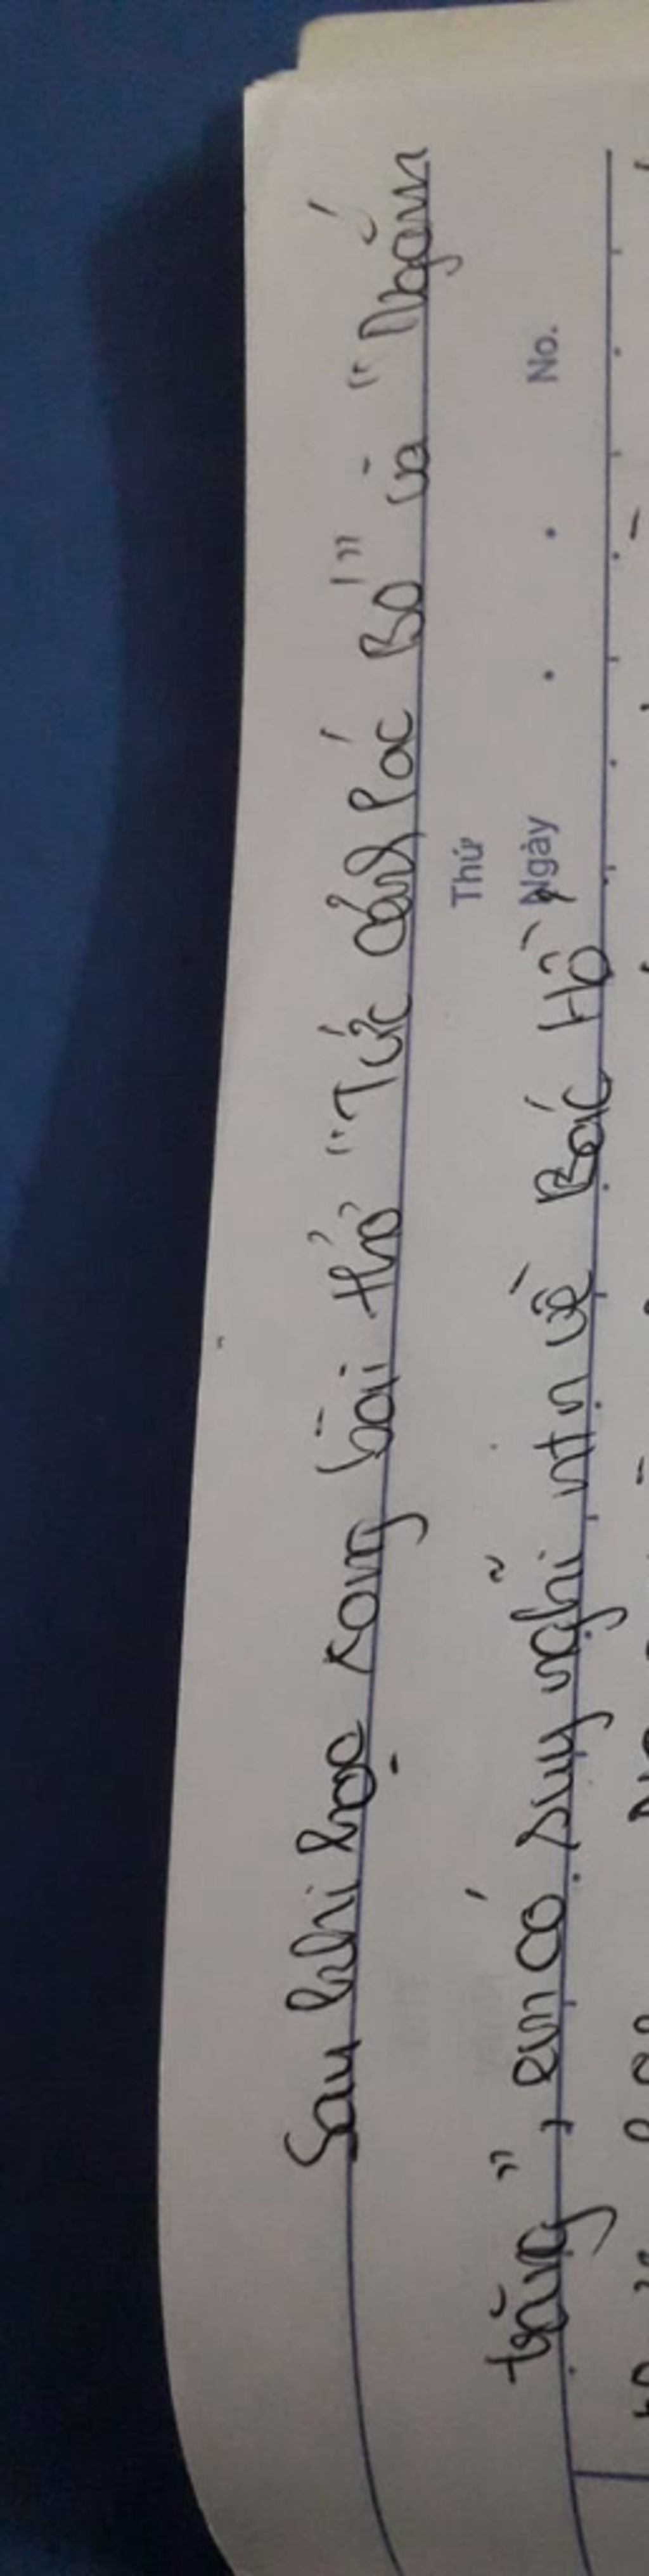 Sau khi học xong bài thơ "Tức cảnh Pác Bó" và "Ngắm
Thứ
Ngày No.
trăng", em có suy nghĩ ntn về Bác Hồ?